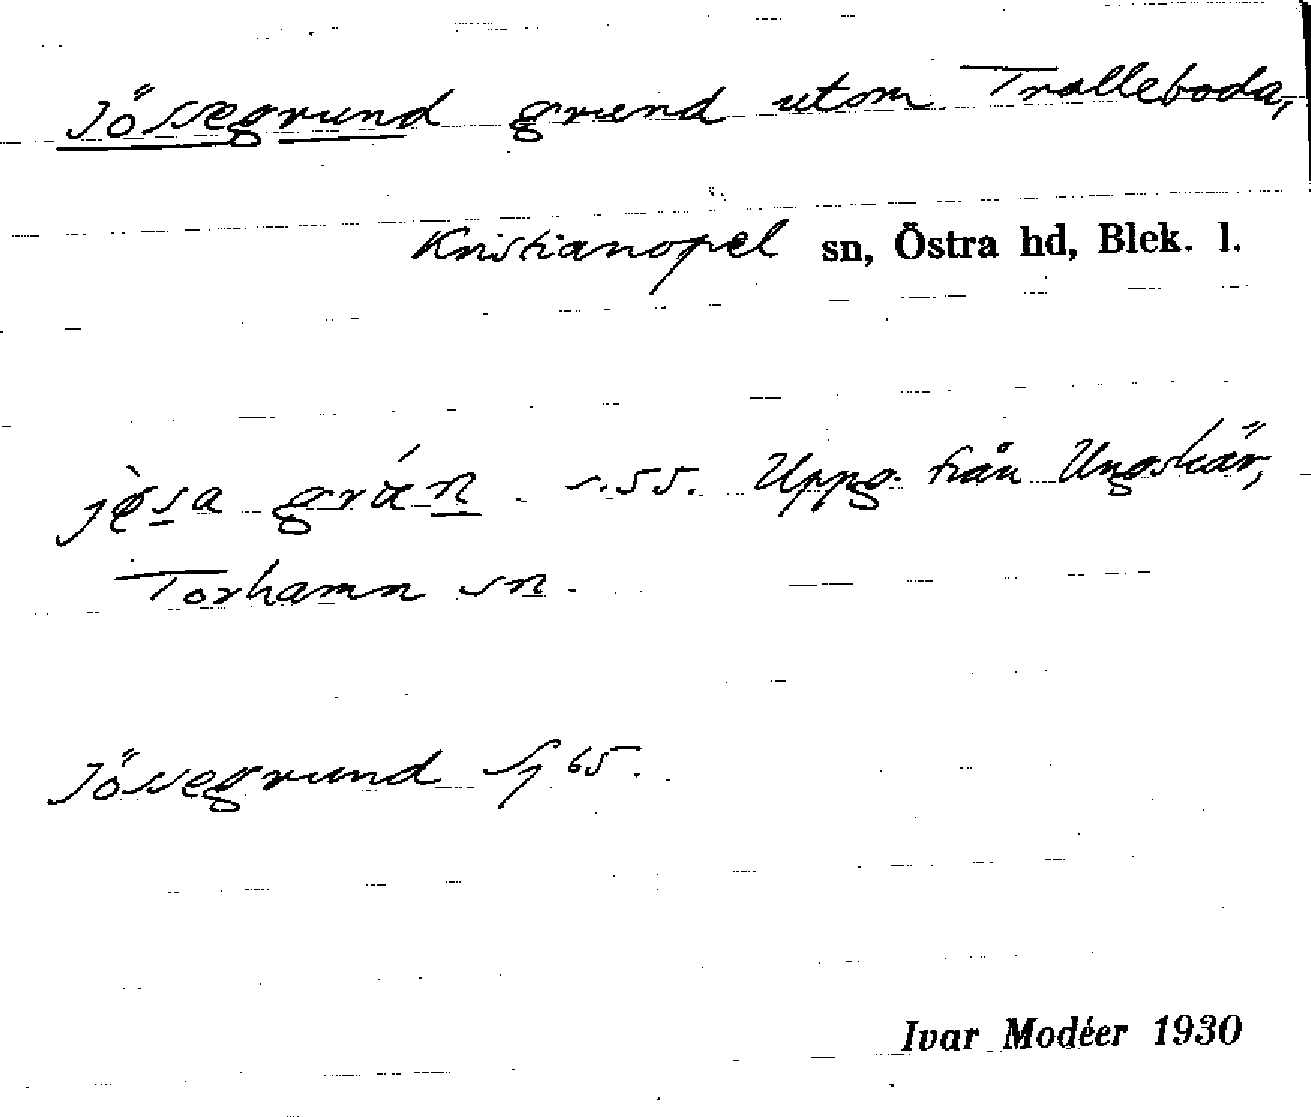 Jössegrund grund utom Tralleboda,
Kristianopel sn, Östra hd, Blek. l.
s. 55. Uppg. från Ungskär,
Torhamn sn.
Jössegrund Sj 65.
Ivar Modéer 1930